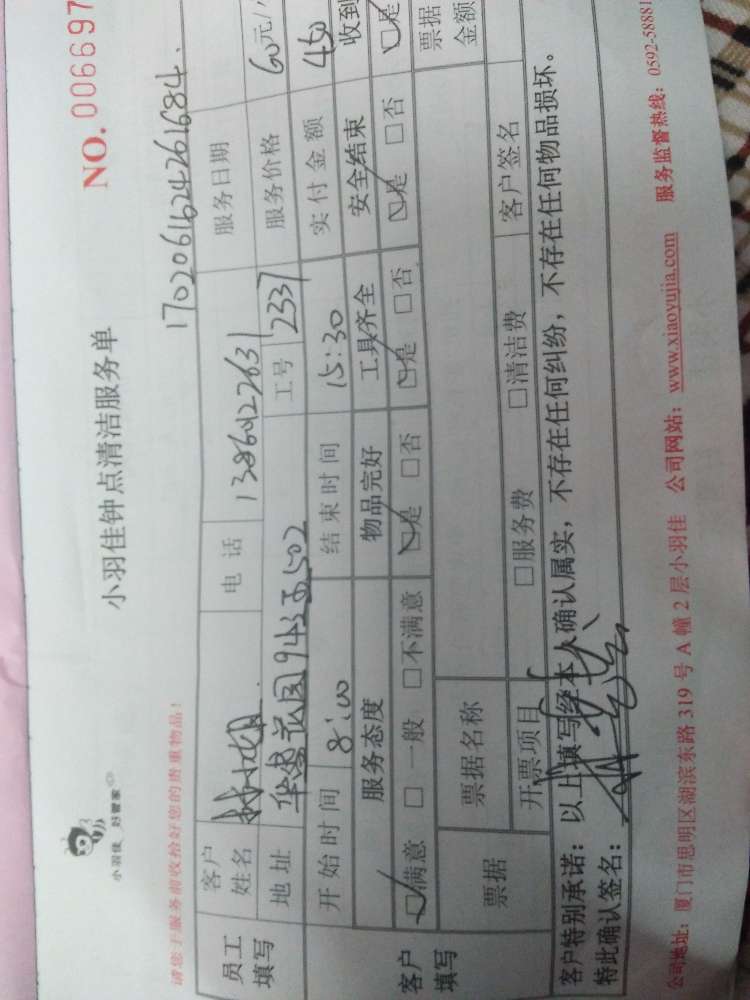 小羽佳 好管家
小羽佳钟点清洁服务单
NO. 006697
请您于服务前收拾好您的贵重物品！
1702061624261684.
员工填写
客户姓名 林小姐 电话 服务日期
地址 华景花园 502 工号 2337 服务价格 60元/
开始时间 8:00 结束时间 15:30 实付金额 450
客户填写
服务态度 物品完好 工具齐全 安全结束 收到
☑满意 □一般 □不满意 ☑是 □否 ☑是 □否 ☑是 □否 ☑是
票据 票据名称 票据金额
开票项目 □服务费 □清洁费 客户签名
客户特别承诺：以上填写经本人确认属实，不存在任何纠纷，不存在任何物品损坏。
特此确认签名：
公司地址：厦门市思明区湖滨东路 319 号 A 幢 2 层小羽佳 公司网站：www.xiaoyujia.com 服务监督热线：0592-58881